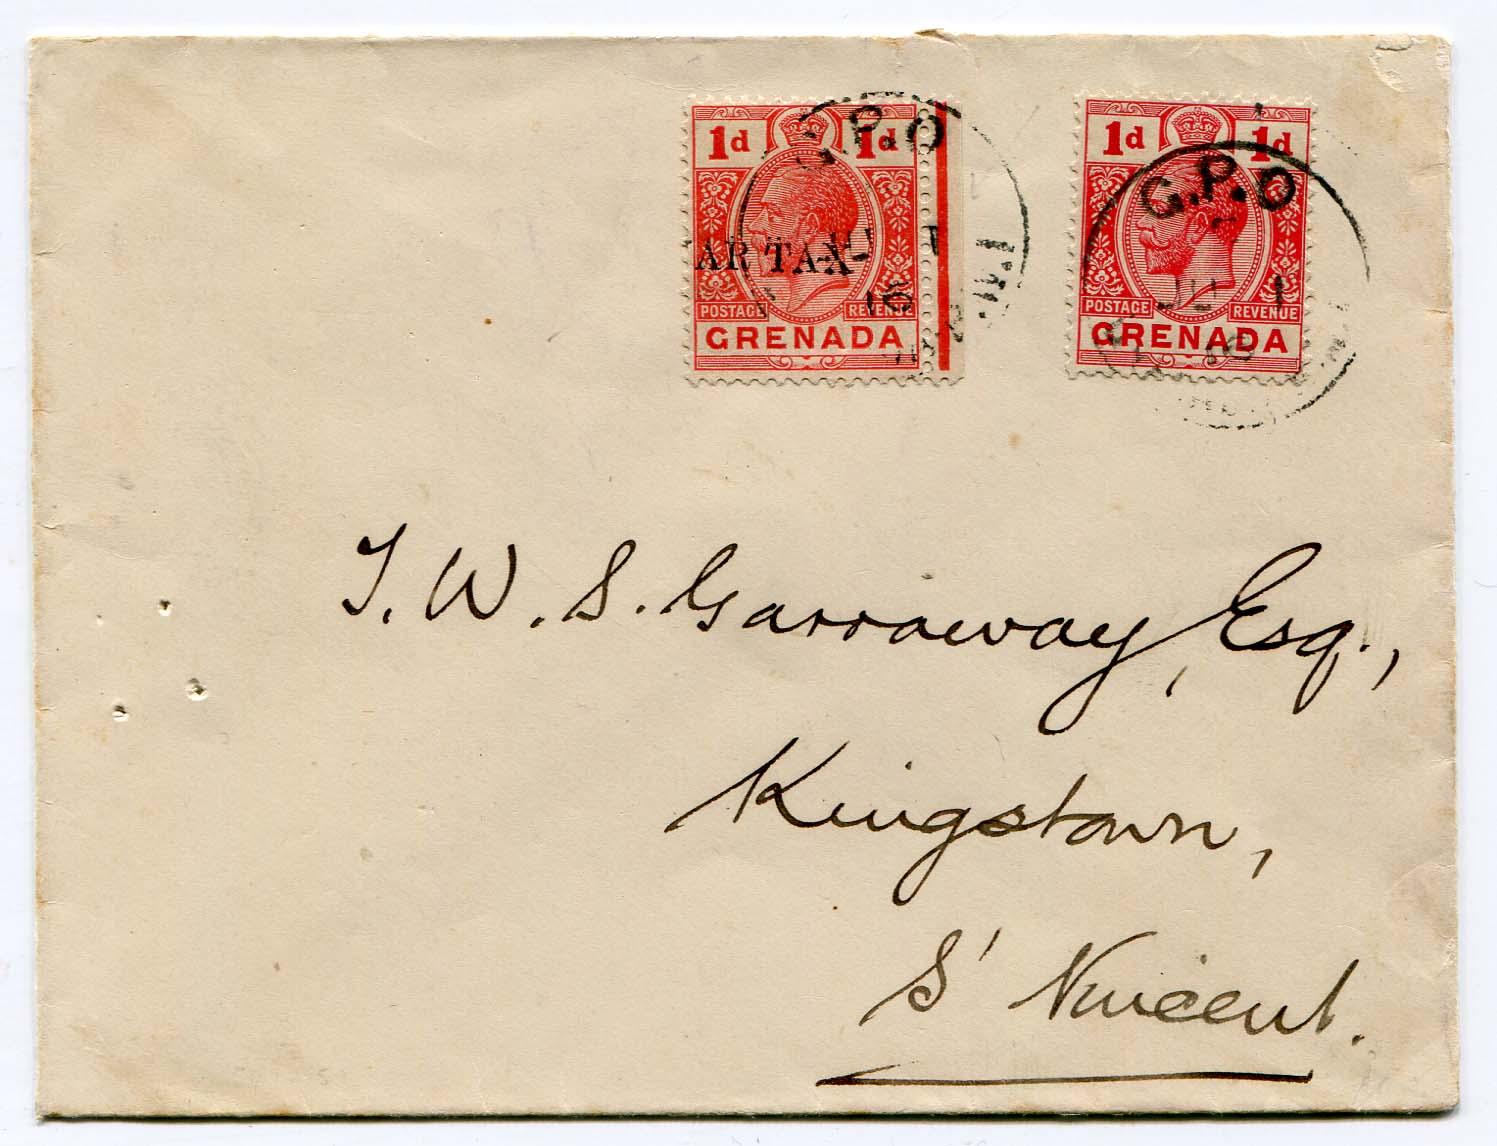 1d 1d
AR TAX
POSTAGE REVENUE
GRENADA
G.P.O
16
1d 1d
POSTAGE REVENUE
GRENADA
G.P.O
JU 1
16
T. W. S. Garraway, Esq.,
Kingstown,
St Vincent.